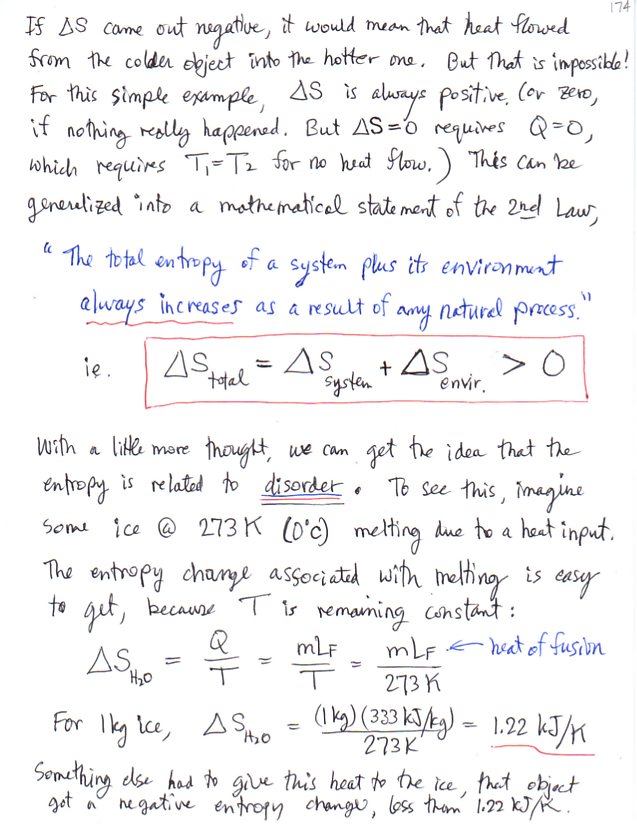 174
If ΔS came out negative, it would mean that heat flowed
from the colder object into the hotter one. But that is impossible!
For this simple example, ΔS is always positive. (or zero,
if nothing really happened. But ΔS=0 requires Q=0,
which requires T₁=T₂ for no heat flow.) This can be
generalized into a mathematical statement of the 2nd Law,
"The total entropy of a system plus its environment
always increases as a result of any natural process."
ie. ΔS_total = ΔS_system + ΔS_envir. > 0
With a little more thought, we can get the idea that the
entropy is related to disorder. To see this, imagine
some ice @ 273 K (0°C) melting due to a heat input.
The entropy change associated with melting is easy
to get, because T is remaining constant:
ΔS_H₂O = Q/T = mL_F/T = mL_F/273 K ← heat of fusion
For 1 kg ice, ΔS_H₂O = (1 kg)(333 kJ/kg)/273 K = 1.22 kJ/K
Something else had to give this heat to the ice, that object
got a negative entropy change, less than 1.22 kJ/K.